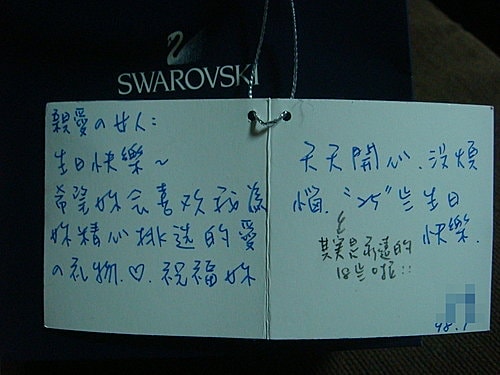 SWAROVSKI
親愛の女人:
生日快樂~
希望妳会喜欢我為
妳精心挑选的愛
の礼物.♡.祝福妳
天天開心.沒煩
惱."25"岁生日
快樂.
其实是永遠的
18岁啦::
98.1